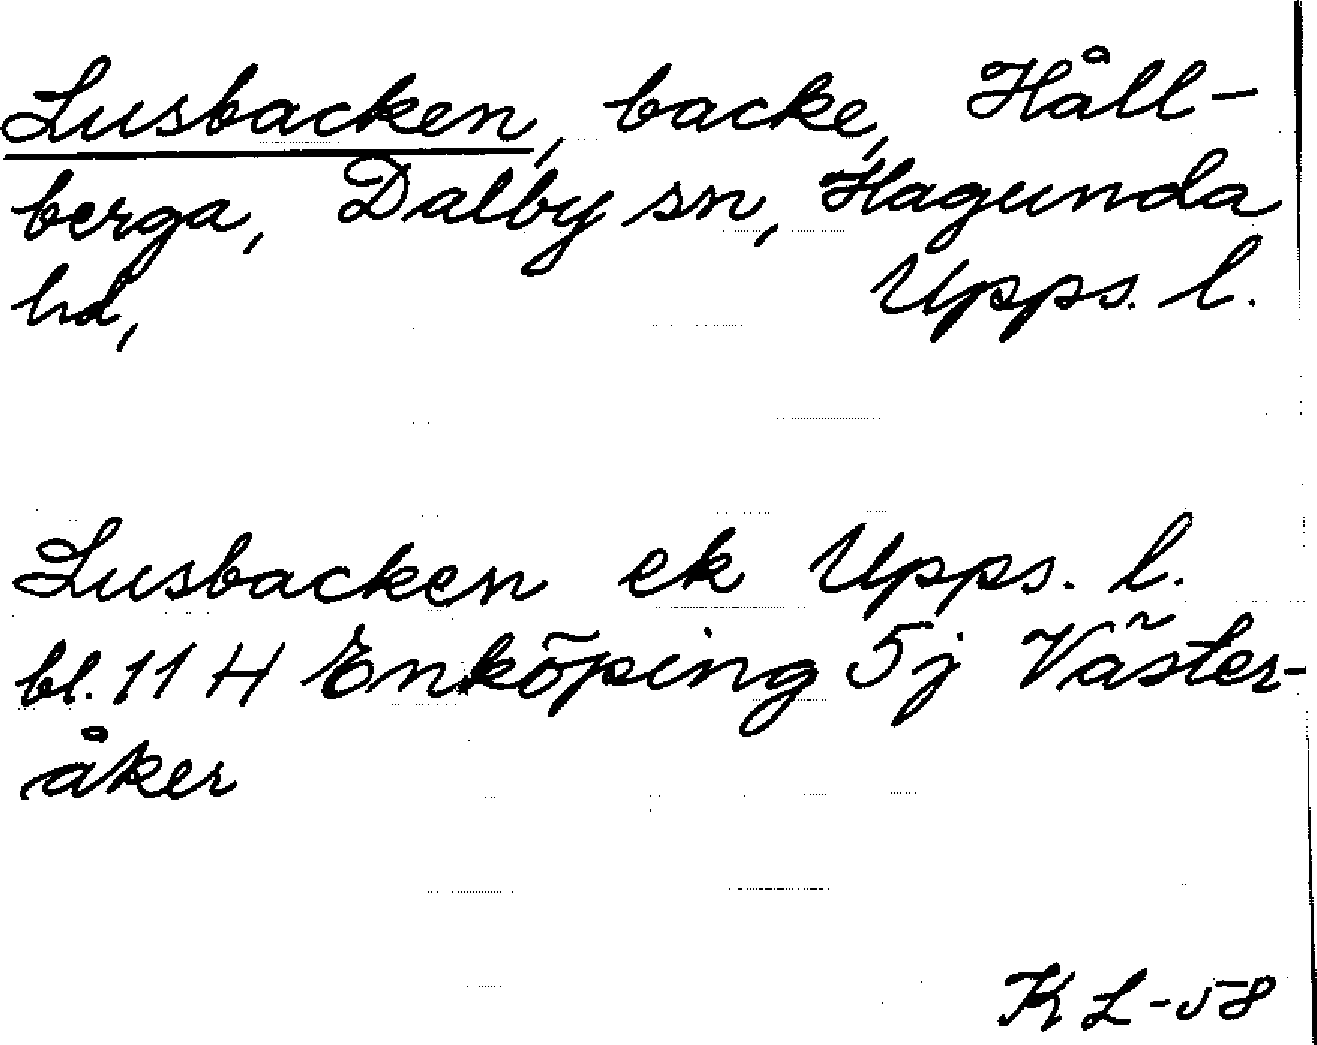 Lusbacken, backe, Håll-
berga, Dalby sn, Hagunda
hd, Upps. l.
Lusbacken ek Upps. l.
bl. 11 H Enköping 5j Väster-
åker
KL-58